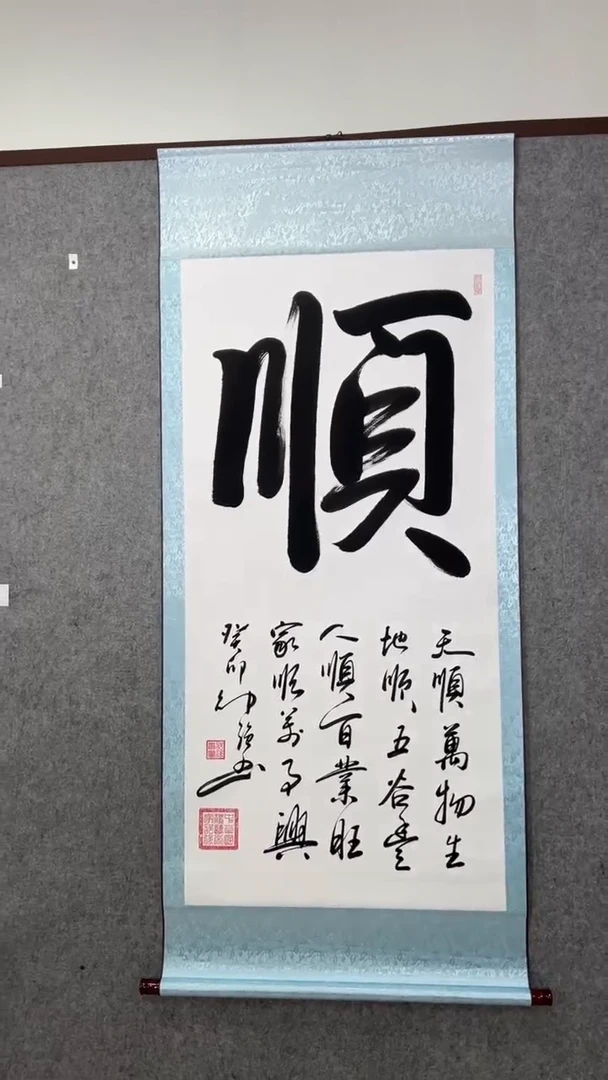 順
天順萬物生
地順五谷豊
人順百業旺
家順萬事興
癸卯
書